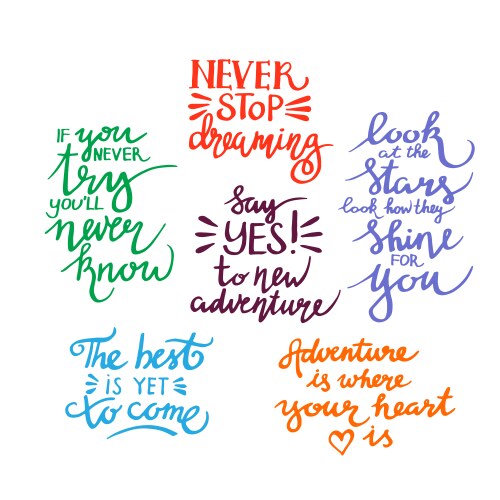 NEVER
STOP
dreaming
IF you
NEVER
try
YOU'LL
never
know
say
YES!
to new
adventure
look
at the
stars
look how they
shine
FOR
you
The best
IS YET
to come
Adventure
is where
your heart
is